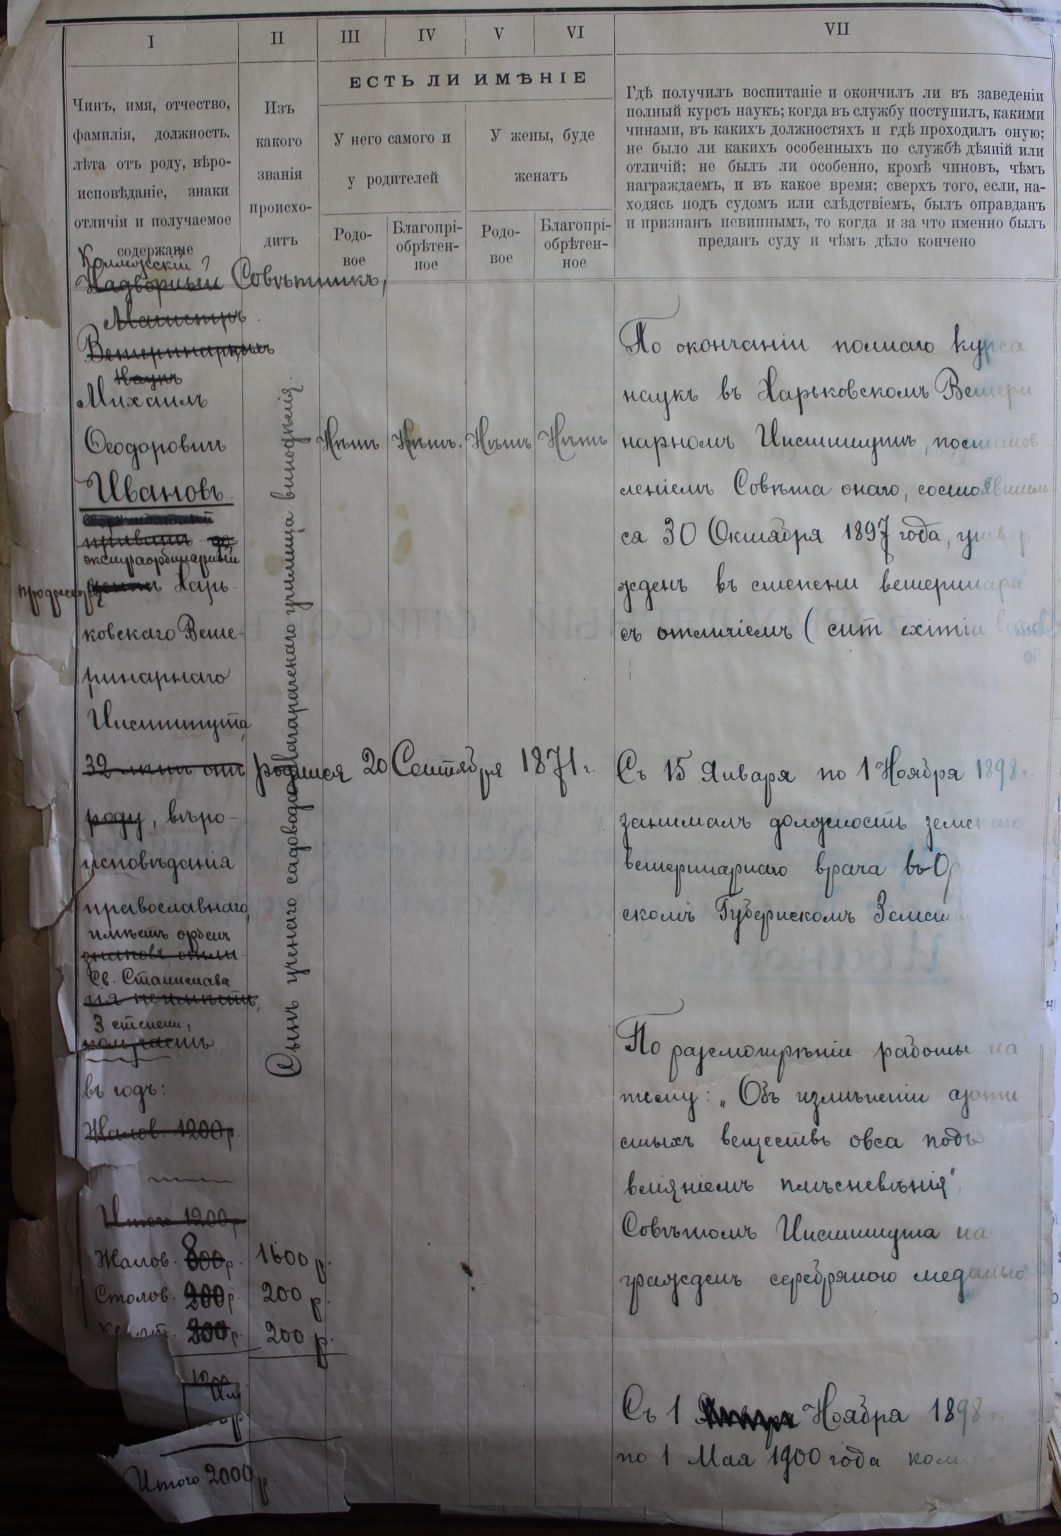 I
II
III
IV
V
VI
VII
Чинъ, имя, отчество,
фамилія, должность.
лѣта отъ роду, вѣро-
исповѣданіе, знаки
отличія и получаемое
содержаніе
Изъ
какого
званія
происхо-
дитъ
ЕСТЬ ЛИ ИМѢНІЕ
У него самого и
у родителей
У жены, буде
женатъ
Родо-
вое
Благопрі-
обрѣтен-
ное
Родо-
вое
Благопрі-
обрѣтен-
ное
Гдѣ получилъ воспитаніе и окончилъ ли въ заведеніи
полный курсъ наукъ; когда въ службу поступилъ, какими
чинами, въ какихъ должностяхъ и гдѣ проходилъ оную;
не было ли какихъ особенныхъ по службѣ дѣяній или
отличій; не былъ ли особенно, кромѣ чиновъ, чѣмъ
награждаемъ, и въ какое время; сверхъ того, если, на-
ходясь подъ судомъ или слѣдствіемъ, былъ оправданъ
и признанъ невиннымъ, то когда и за что именно былъ
преданъ суду и чѣмъ дѣло кончено
Коллежскій
Надворный Совѣтникъ,
Магистръ
Ветеринарныхъ
Наукъ
Михаилъ
Ѳеодоровичъ
Ивановъ
приватъ-до
экстраординарный
профессоръ центъ Харь-
ковскаго Вете-
ринарнаго
Института,
32 лѣтъ отъ родился 20 Сентября 1871 г.
роду, вѣро-
исповѣданія
православнаго,
имѣетъ орденъ
знаковъ отли-
Св. Станислава
чія неимѣетъ,
3 степени,
получаетъ
въ годъ:
Жалов. 1200 р.
Итого 1200 р.
Жалов. 800 р. 1600 р.
Столов. 200 р. 200 р.
Кварт. 200 р. 200 р.
1200
Итого 2000 р.
Сынъ ученаго садовода Магарачскаго училища винодѣлія.
Нѣтъ
Нѣтъ.
Нѣтъ
Нѣтъ
По окончаніи полнаго курса
наукъ въ Харьковскомъ Ветери
нарномъ Институтѣ, постанов-
леніемъ Совѣта онаго, состоявшим-
ся 30 Октября 1897 года, утвер
жденъ въ степени ветеринара
съ отличіемъ (cum eximia
Съ 15 Января по 1 Ноября 1898 г.
занималъ должность земскаго
ветеринарнаго врача въ
скомъ Губернскомъ
По разсмотрѣніи работы на
тему: „Объ измѣненіи азоти
стыхъ веществъ овса подъ
вліяніемъ плѣсневѣнія"
Совѣтомъ Института на
гражденъ серебряною медалью
Съ 1 Января Ноября 1898 г.
по 1 Мая 1900 года